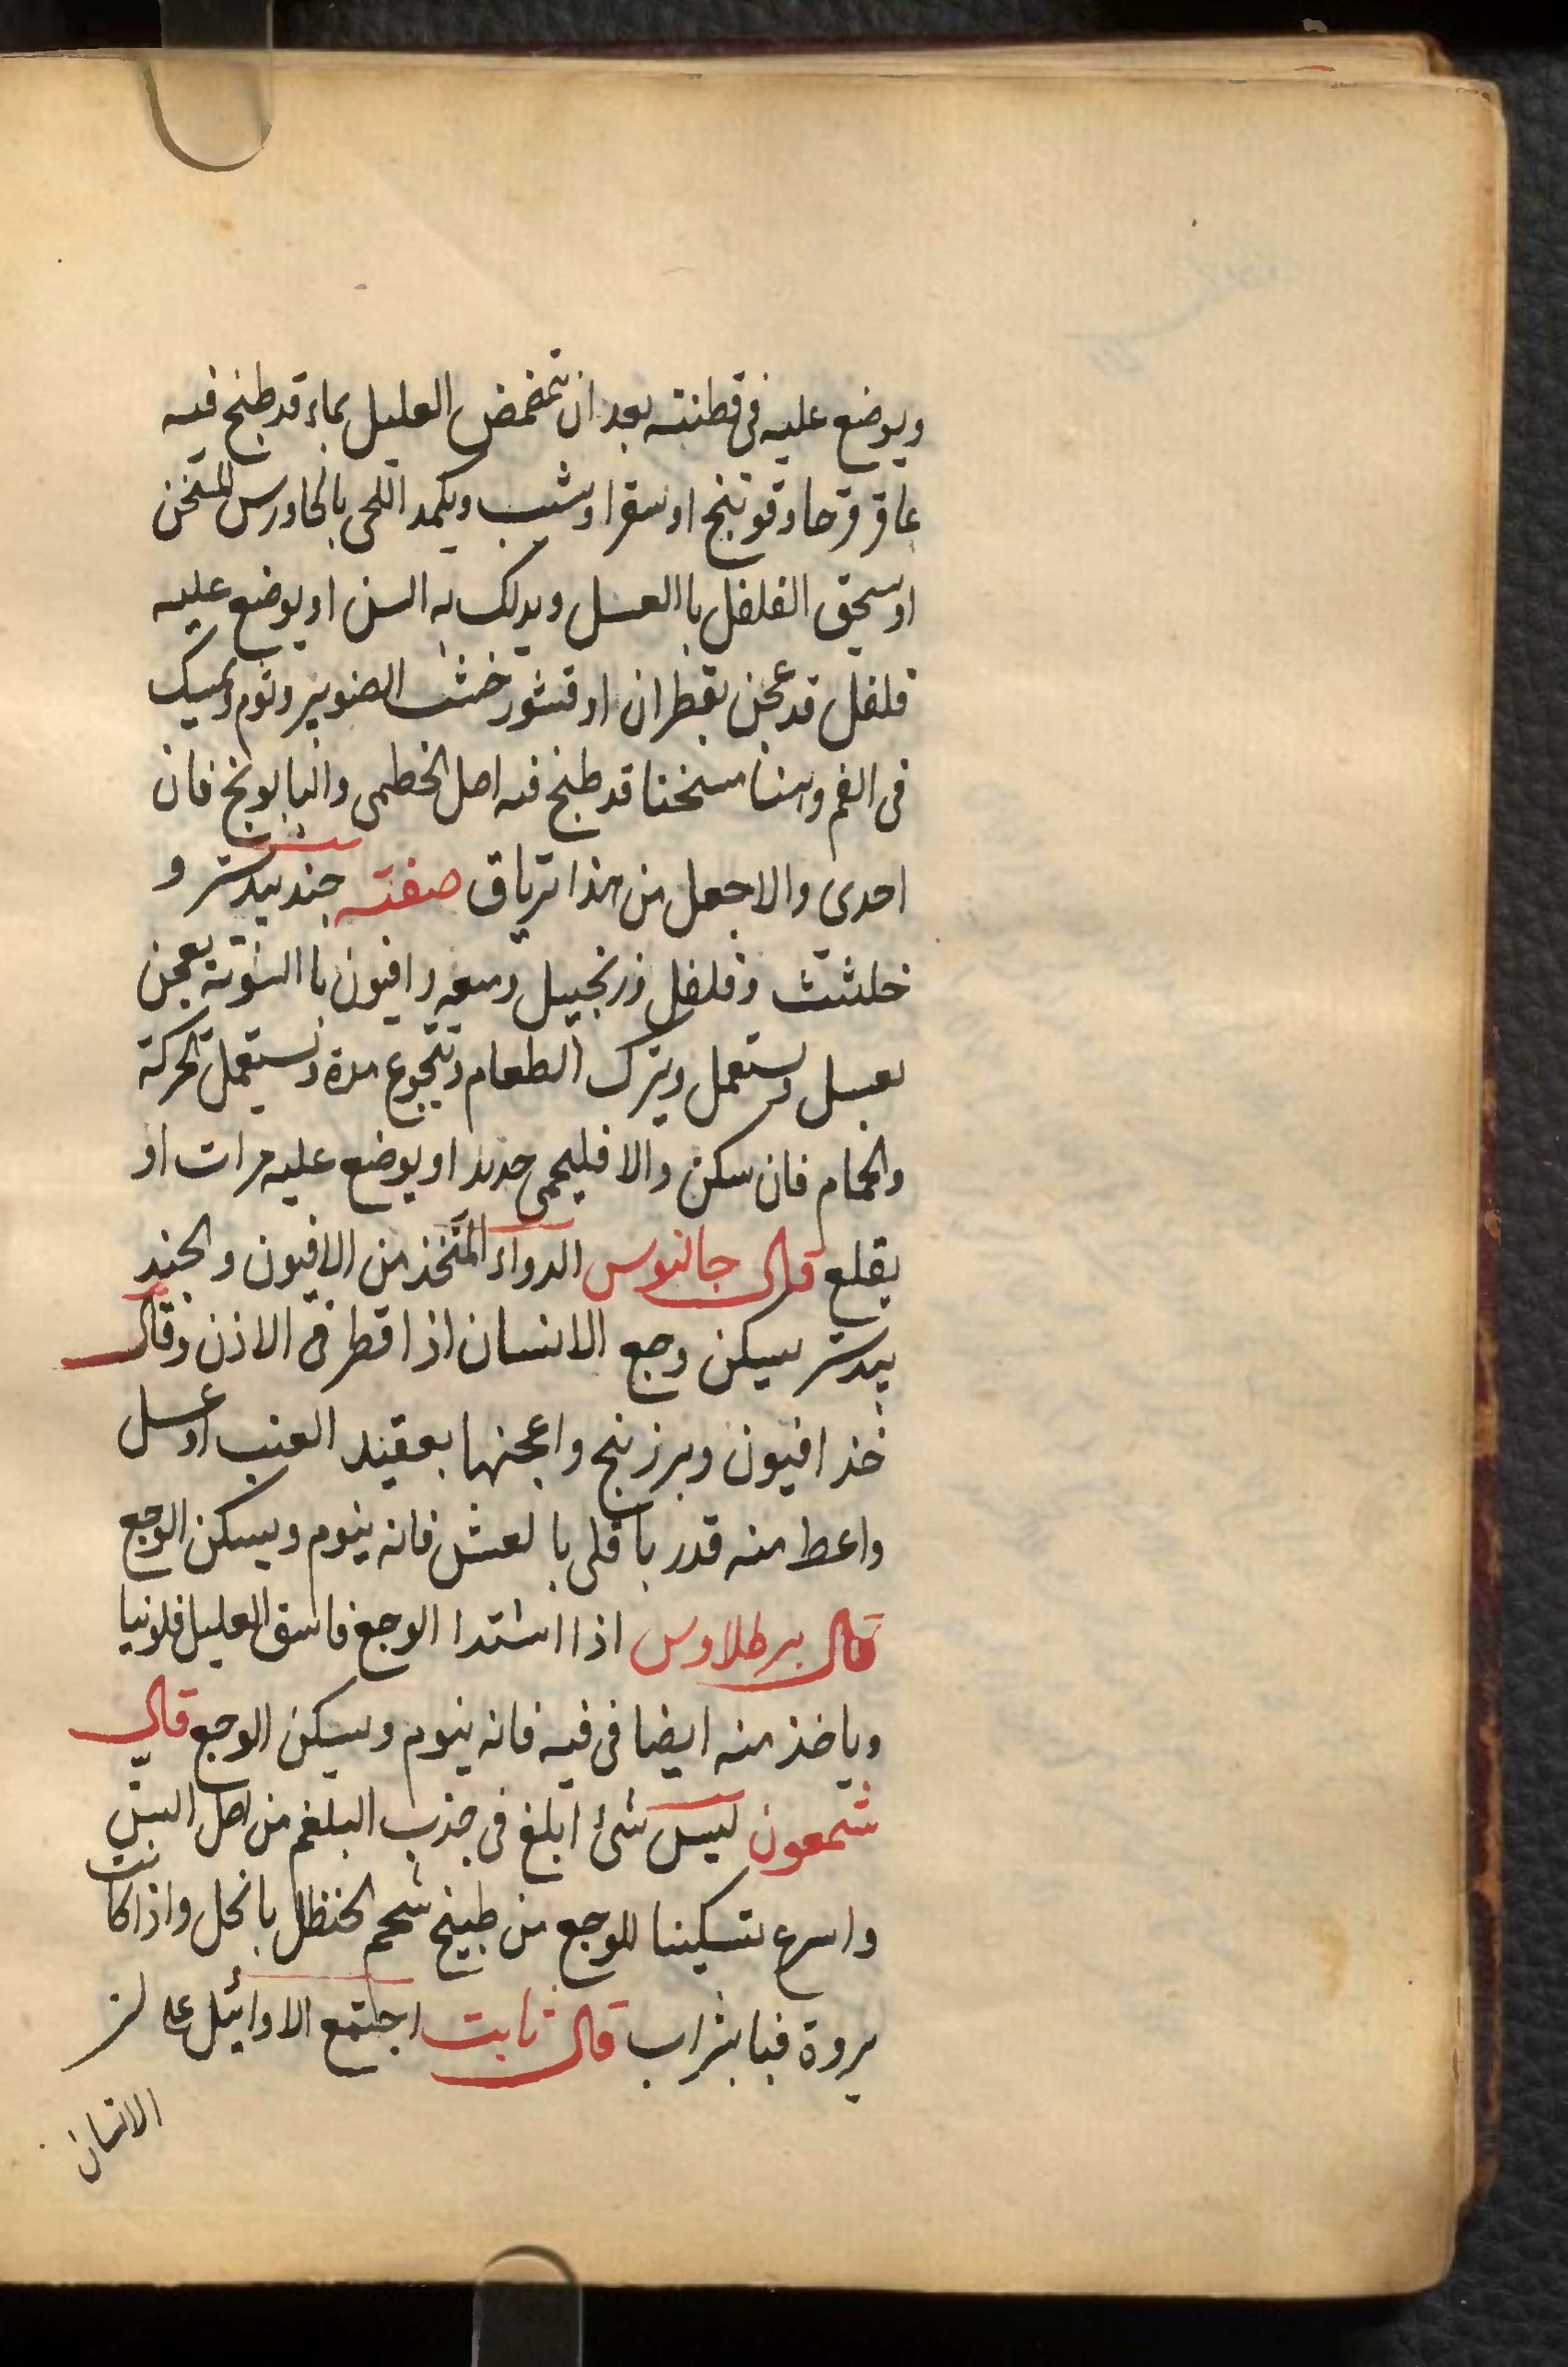 ويوضع عليه فى قطنته بعد ان تمضمض العليل بماء قد طبخ فيه
عاقر قرحا وقوتنج او سقرا وشب ويكمد اللحى بالجاورس المسخن
او سحق الفلفل باالعسل ويدلك به السن او يوضع عليه
فلفل قد عجن بقطران او قشور خشب الصنوبر وثوم ويمسك
فى الفم مسخنا قد طبخ فيه اصل الخطمى والبابونج فان
احدى والا جعل من هذا ترياق صفته جند بيدستر و
خلتيت وفلفل وزنجبيل وميعه وافيون باالسوية يعجن
بعسل ويستعمل ويترك الطعام ويتجوع مدة ويستعمل الحركة
والحمام فان سكن والا فليحمى حديد او يوضع عليه مرات او
يقلع قال جالنوس الدواء المتخذ من الافيون والجند
بيدستر يسكن وجع الانسان اذا قطر فى الاذن وقال
خذ افيون وبرزبنج واعجنها بعقيد العنب او عسل
واعط منه قدر باقلى بالعشى فانه ينوم ويسكن الوجع
قال برطلاوس اذا اشتدا الوجع فاسق العليل فلونيا
وياخذ منه ايضا فى فيه فانه ينوم ويسكن الوجع قال
شمعون ليس شئ ابلغ فى جذب البلغم من اصل السن
واسرع تسكينا للوجع من طبيخ شحم الحنظل بالخل واذا كانت
بروة فبا بشراب قال ثابت اجتمع الاوائل على ان
الانسان